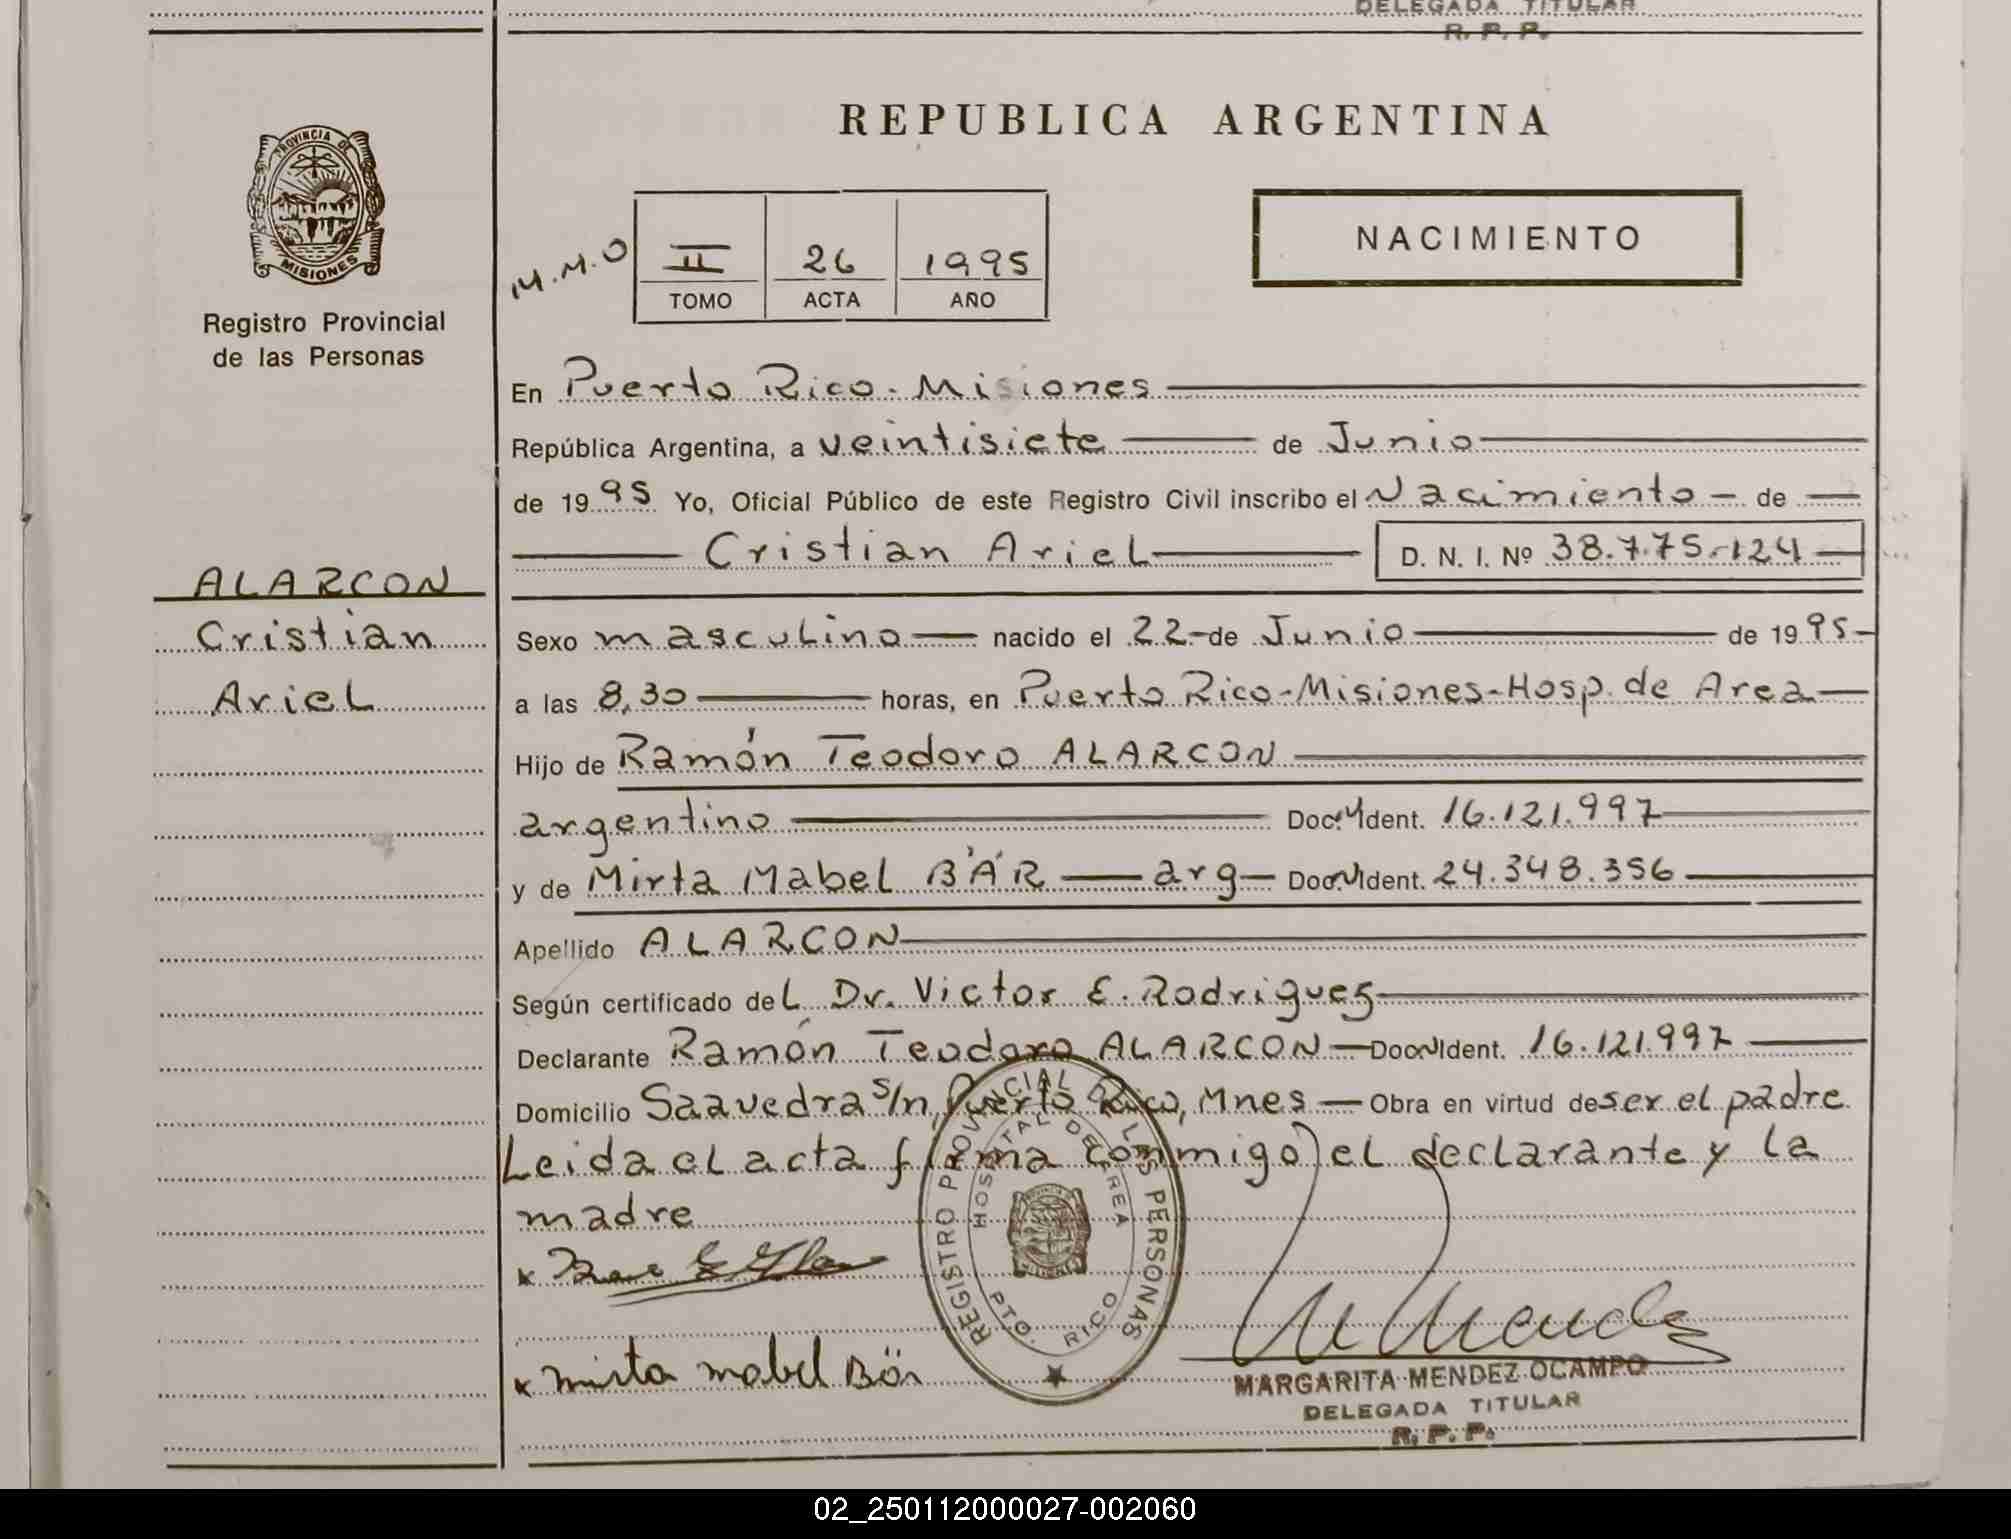 DELEGADA TITULAR
R. P. P.
REPUBLICA ARGENTINA
PROVINCIA DE
MISIONES
Registro Provincial
de las Personas
M.M.O
II 26 1995
TOMO ACTA AÑO
NACIMIENTO
En Puerto Rico - Misiones
República Argentina, a veintisiete de Junio
de 1995 Yo, Oficial Público de este Registro Civil inscribo el Nacimiento - de
Cristian Ariel D. N. I. Nº 38.775.124
ALARCON
Cristian
Ariel
Sexo masculino nacido el 22 - de Junio de 1995 -
a las 8,30 horas, en Puerto Rico - Misiones - Hosp. de Area
Hijo de Ramón Teodoro ALARCON
argentino Doc. Ident. 16.121.997
y de Mirta Mabel BÄR arg Doc. Ident. 24.348.356
Apellido ALARCON
Según certificado del Dr. Victor E. Rodriguez
Declarante Ramón Teodoro ALARCON - Doc. Ident. 16.121.997
Domicilio Saavedra s/n, Puerto Rico, Mnes - Obra en virtud de ser el padre
Leida el acta firma conmigo el declarante y la
madre
REGISTRO PROVINCIAL DE LAS PERSONAS
HOSPITAL DE AREA
PTO. RICO
x
x Mirta Mabel Bär
MARGARITA MENDEZ OCAMPO
DELEGADA TITULAR
R. P. P.
02_250112000027-002060